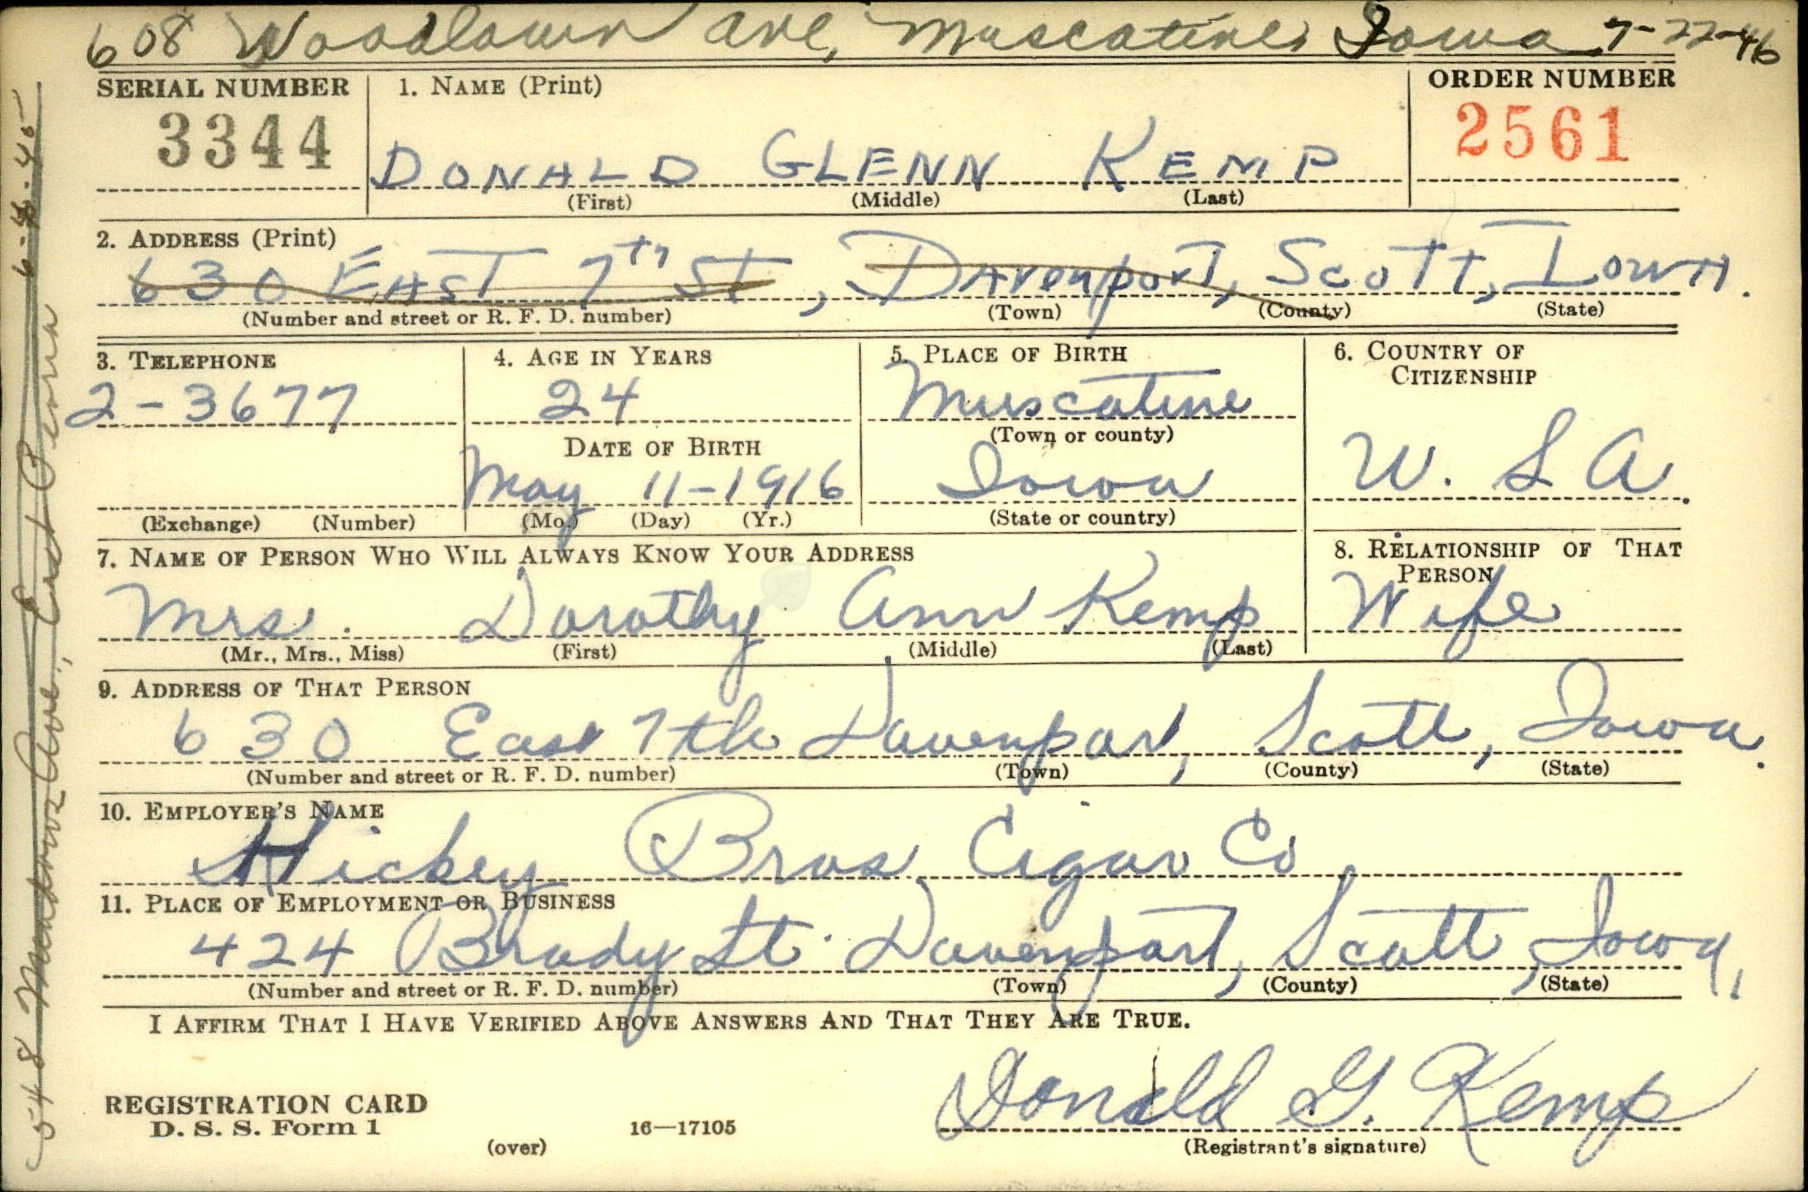 608 Woodlawn Ave, Muscatine, Iowa 7-22-46
SERIAL NUMBER 1. NAME (Print) ORDER NUMBER
3344 DONALD GLENN KEMP 2561
(First) (Middle) (Last)
2. ADDRESS (Print)
630 EAST 7th St, Davenport, Scott, Iowa.
(Number and street or R. F. D. number) (Town) (County) (State)
3. TELEPHONE 4. AGE IN YEARS 5. PLACE OF BIRTH 6. COUNTRY OF CITIZENSHIP
2-3677 24 Muscatine
(Town or county)
DATE OF BIRTH
May 11-1916 Iowa U. S A.
(Exchange) (Number) (Mo.) (Day) (Yr.) (State or country)
7. NAME OF PERSON WHO WILL ALWAYS KNOW YOUR ADDRESS 8. RELATIONSHIP OF THAT PERSON
Mrs. Dorothy Ann Kemp Wife
(Mr., Mrs., Miss) (First) (Middle) (Last)
9. ADDRESS OF THAT PERSON
630 East 7th Davenport, Scott, Iowa.
(Number and street or R. F. D. number) (Town) (County) (State)
10. EMPLOYER'S NAME
Hickey Bros. Cigar Co
11. PLACE OF EMPLOYMENT OR BUSINESS
424 Brady St. Davenport, Scott, Iowa,
(Number and street or R. F. D. number) (Town) (County) (State)
I AFFIRM THAT I HAVE VERIFIED ABOVE ANSWERS AND THAT THEY ARE TRUE.
Donald G. Kemp
REGISTRATION CARD
D. S. S. Form 1
(over) 16—17105 (Registrant's signature)
548 Ave., East Peoria